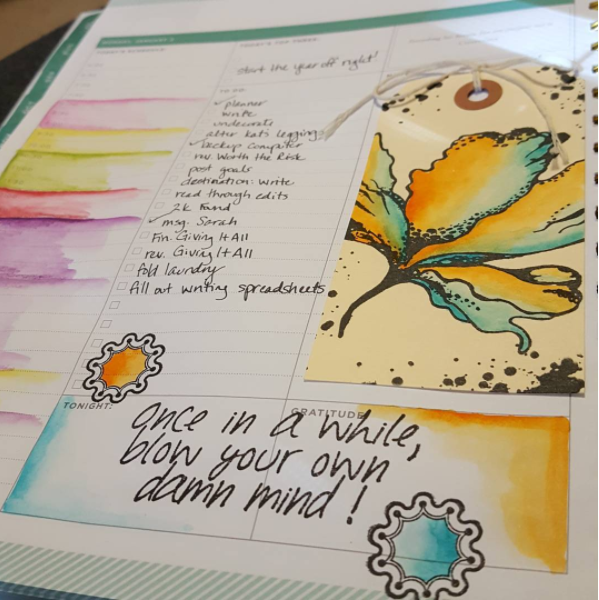 MONDAY, JANUARY 2
TODAY'S SCHEDULE
TODAY'S TOP THREE:
start the year off right!
TO DO:
planner
write
undecorate
alter Kat's legging
backup computer
rev. Worth the Risk
post goals
destination: write
read through edits
2k Fund
msg. Sarah
Fin. Giving It All
rev. Giving It All
fold laundry
fill out writing spreadsheets
TONIGHT:
GRATITUDE
Once in a while,
blow your own
damn mind!